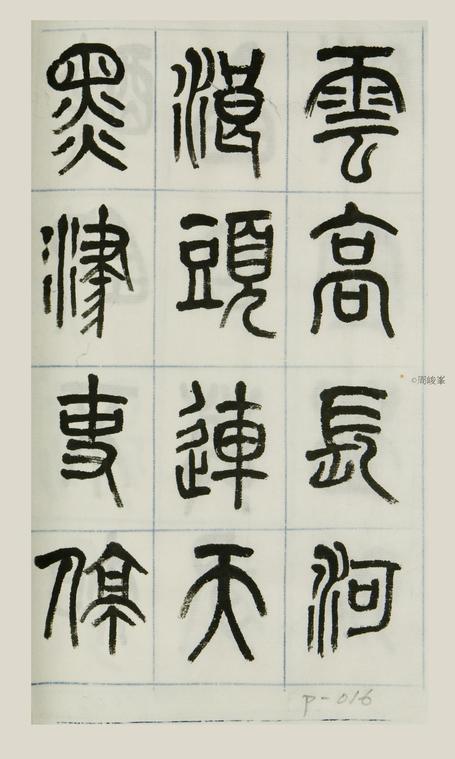 雲高長河
浪頭連天
黑津吏停
©周峻峯
P-016